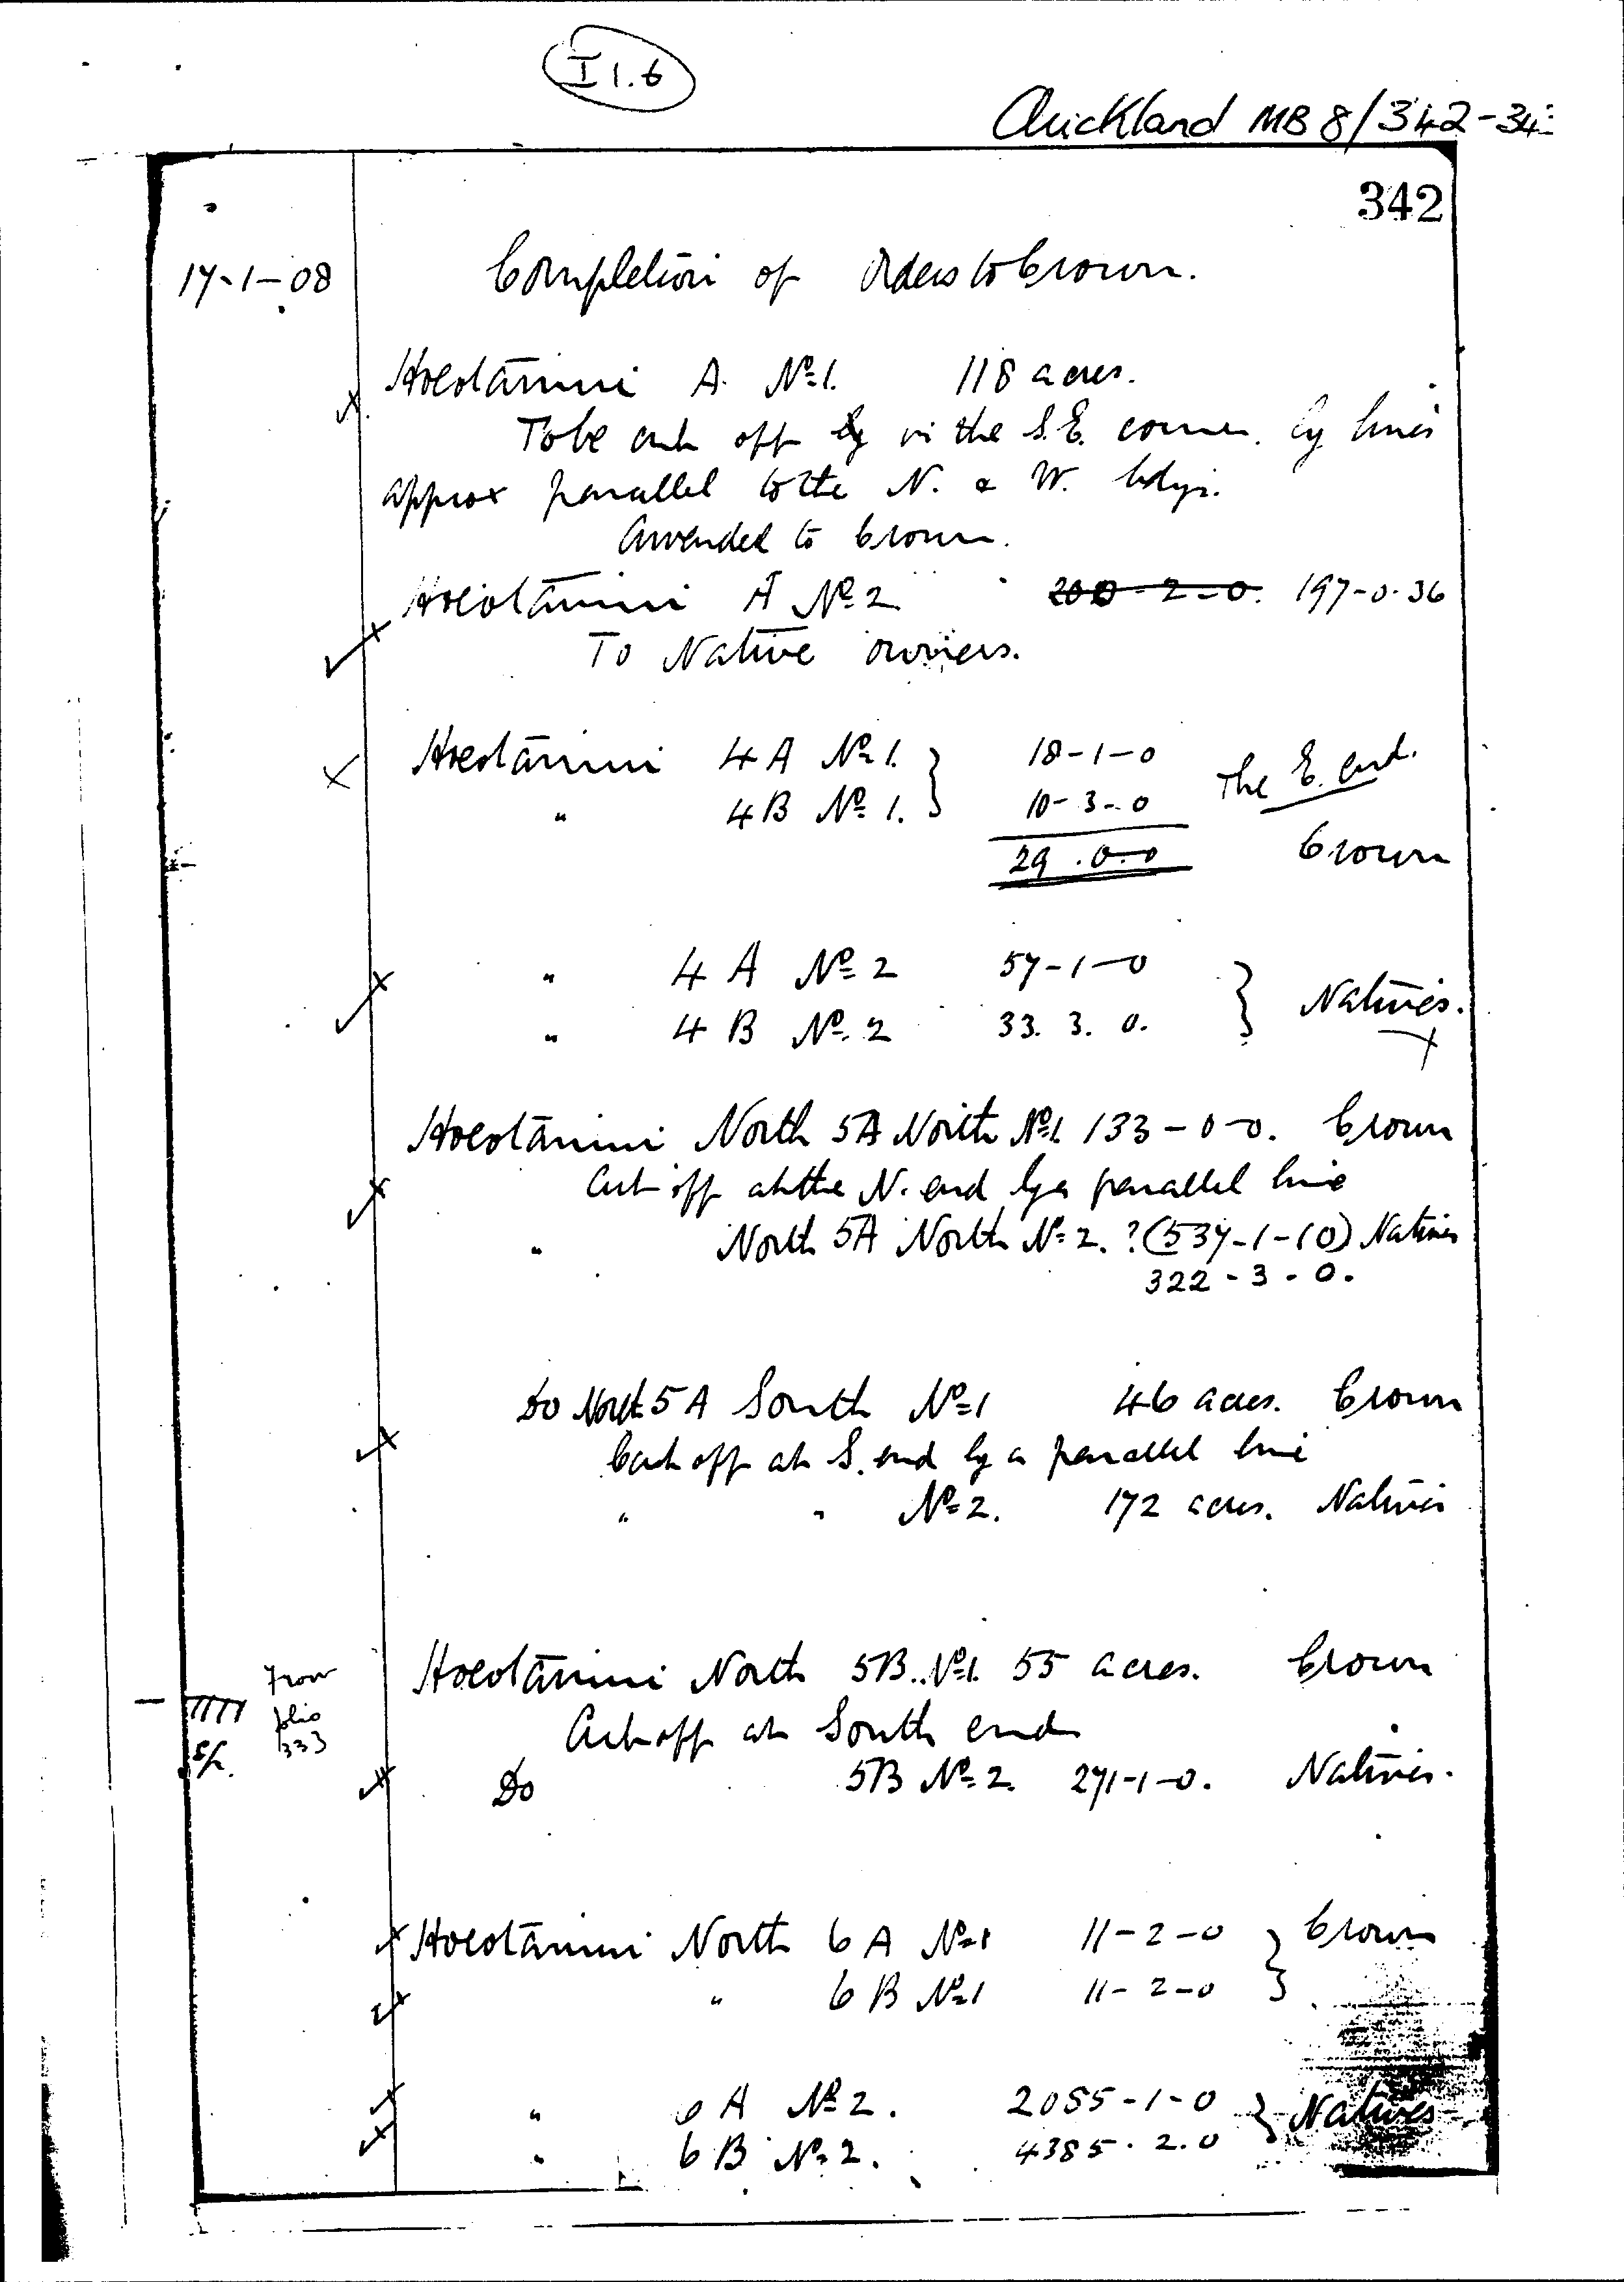 I 1.6
Auckland MB 8/342-34
342
17-1-08
Completion of Orders to Crown.
Hoeotainui A. No 1. 118 acres.
To be cut off by in the S.E. corner by lines
approx parallel to the N. & W. bdys.
Awarded to Crown.
Hoeotainui A No 2 200-2-0. 197-0-36
To Native owners.
Hoeotainui 4 A No 1. } 18-1-0 The E. end.
" 4 B No 1. } 10-3-0
29.0.0 Crown
" 4 A No 2 57-1-0 }
" 4 B No. 2 33. 3. 0. } Natives.
Hoeotainui North 5A North No 1. 133-0-0. Crown
Cut off at the N. end by a parallel line
" North 5A North No 2. ? (537-1-10) Natives
322-3-0.
Do North 5 A South No 1 46 acres. Crown
Cut off at S. end by a parallel line
" " No 2. 172 acres. Natives
Hoeotainui North 5B. No 1. 55 acres. Crown
From
folio
333
Cut off at South end
Do 5B No. 2. 271-1-0. Natives.
Hoeotainui North 6 A No 1 11-2-0 } Crown
" 6 B No 1 11-2-0 }
" 6 A No 2. 2055-1-0 } Natives
" 6 B No. 2. 4385. 2. 0